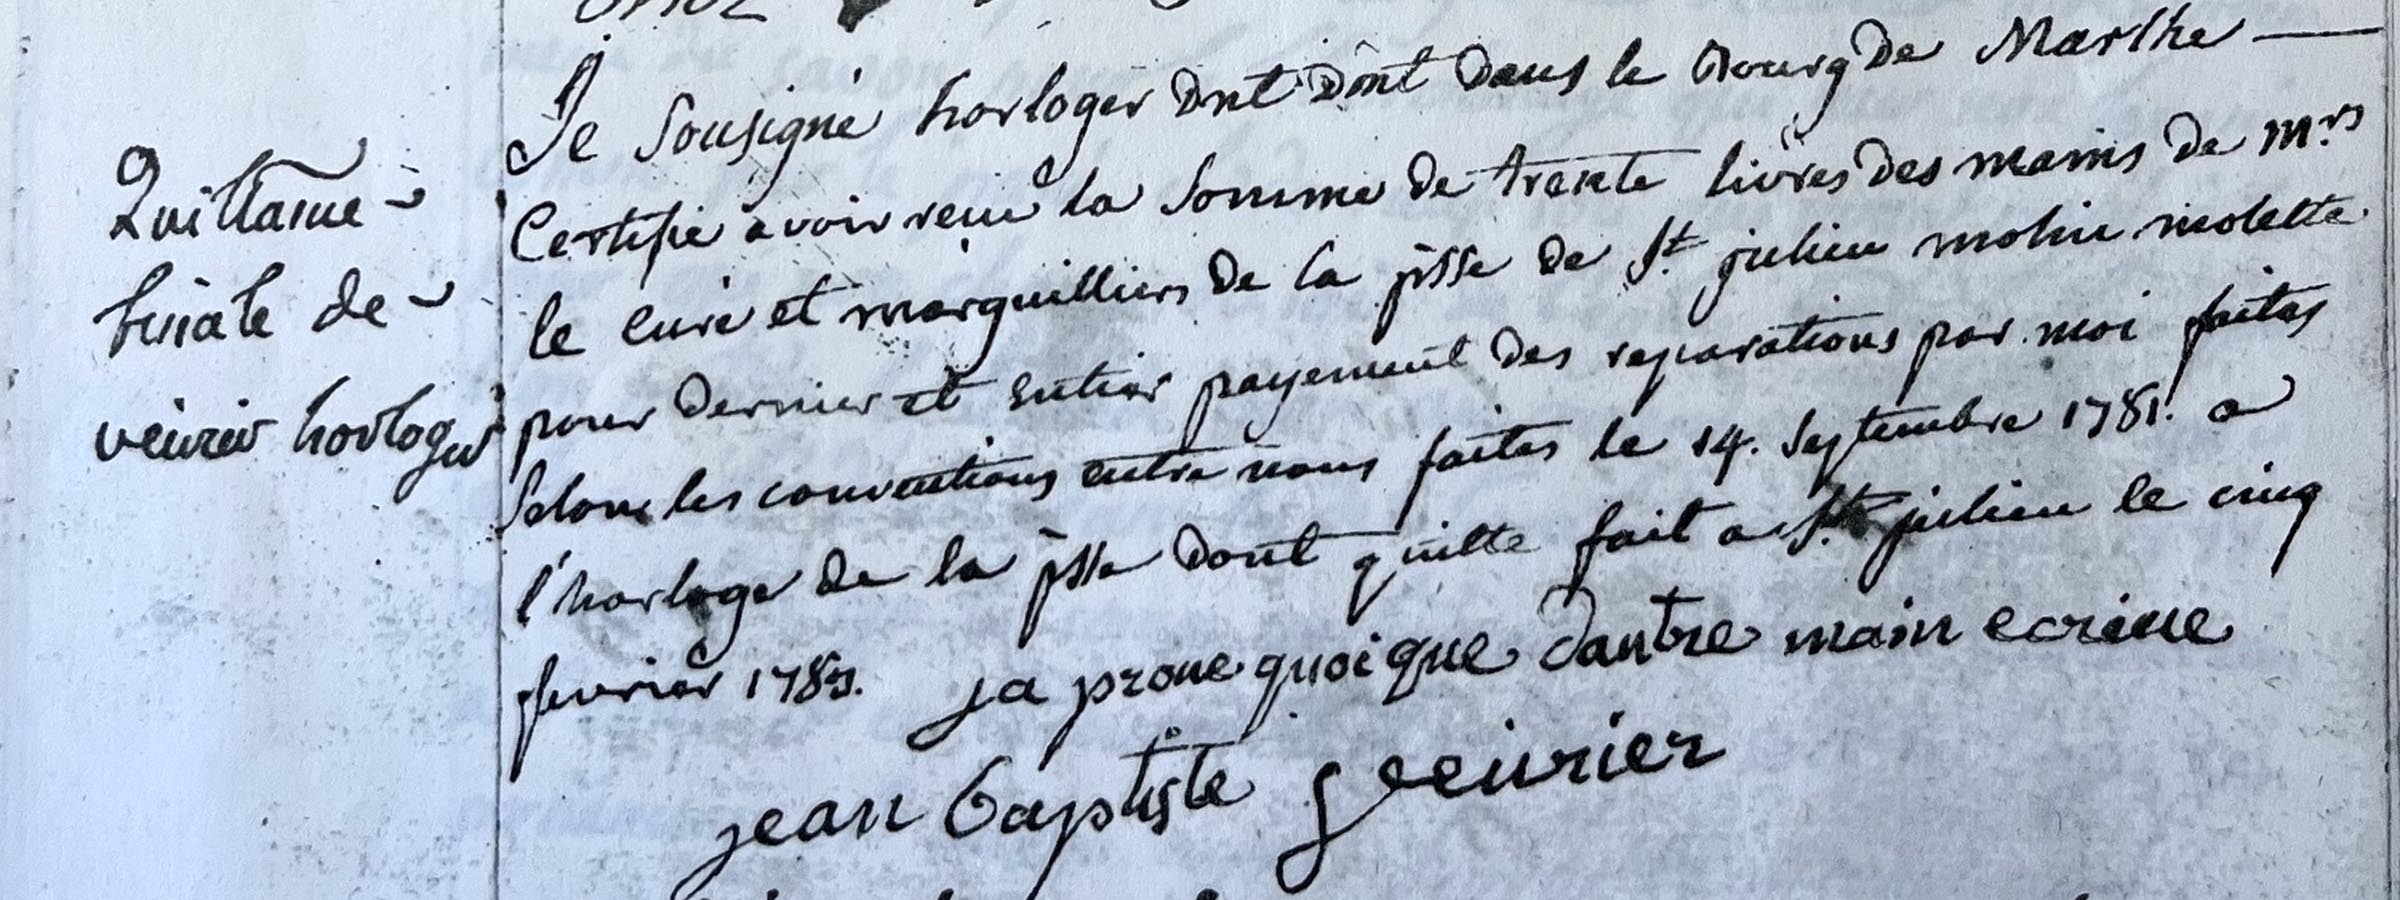 Quittance
finale de
veuvrier horloger
Je Sousigné horloger dans le Bourg de Marlhe
Certifie avoir reçu la Somme de trente livres des mains de Mrs
le curé et marguilliers de la pisse de St julien molin molette
pour dernier et entier payement des reparations par moi faites
Selon les conventions entre nous faites le 14. Septembre 1781. a
l'horloge de la pisse dont quitte fait a St julien le cinq
fevrier 1783. ja prouve quoique dautre main ecritte
jean Baptiste